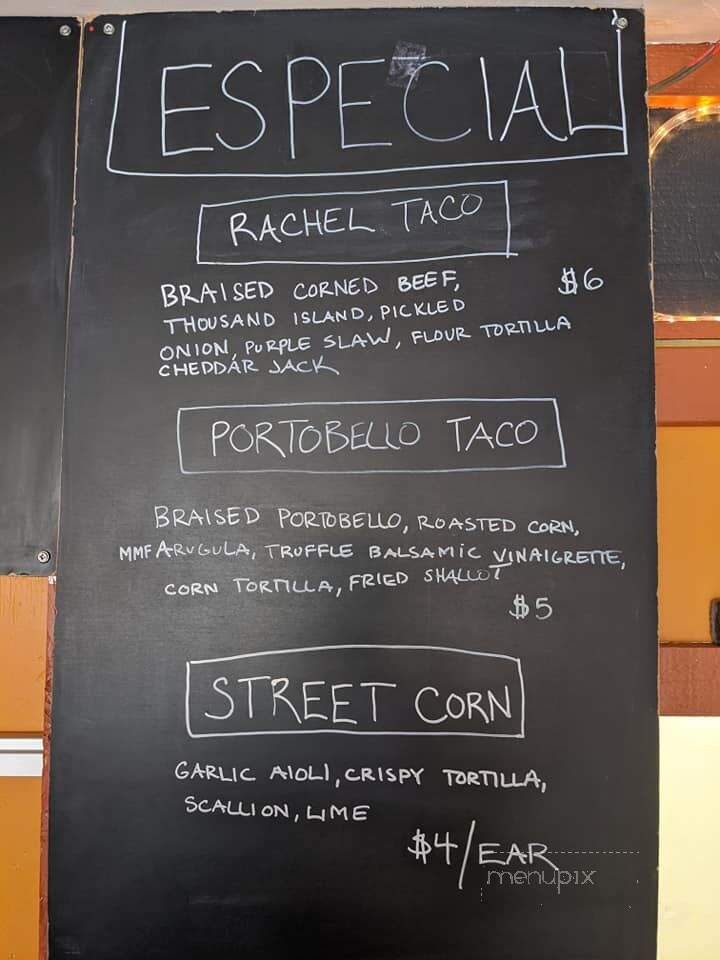 ESPECIAL
RACHEL TACO
BRAISED CORNED BEEF, $6
THOUSAND ISLAND, PICKLED
ONION, PURPLE SLAW, FLOUR TORTILLA
CHEDDAR JACK
PORTOBELLO TACO
BRAISED PORTOBELLO, ROASTED CORN,
MMF ARUGULA, TRUFFLE BALSAMIC VINAIGRETTE,
CORN TORTILLA, FRIED SHALLOT
$5
STREET CORN
GARLIC AIOLI, CRISPY TORTILLA,
SCALLION, LIME
$4/EAR
menupix